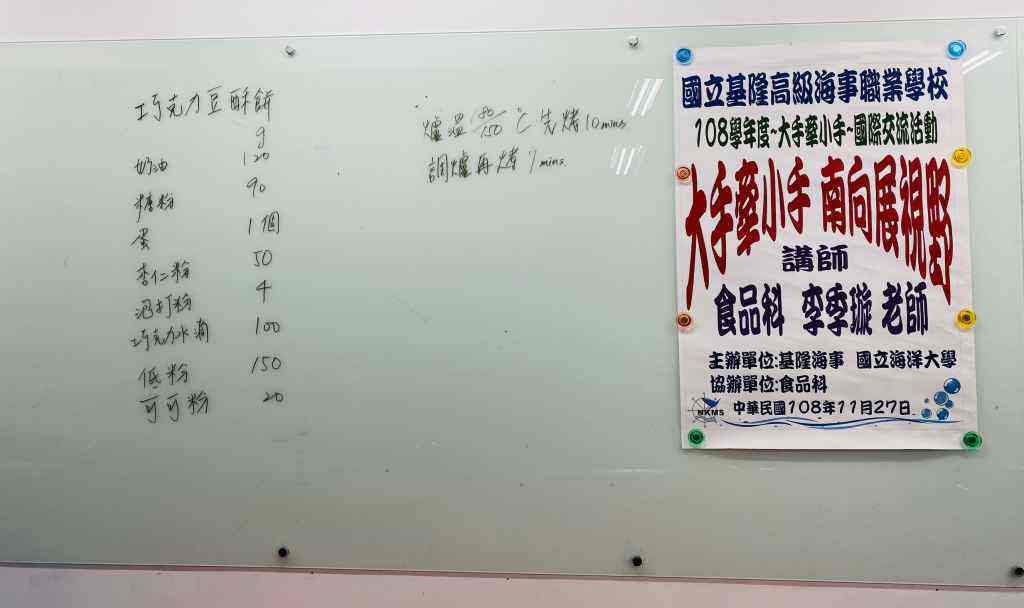 巧克力豆酥餅
g
奶油 120
糖粉 90
蛋 1個
杏仁粉 50
泡打粉 4
巧克力水滴 100
低粉 150
可可粉 20
爐溫 180/150 ℃先烤10mins
調爐再烤 7mins
國立基隆高級海事職業學校
108學年度~大手牽小手~國際交流活動
大手牽小手 南向展視野
講師
食品科 李季璇 老師
主辦單位:基隆海事 國立海洋大學
協辦單位:食品科
NKMS
中華民國108年11月27日